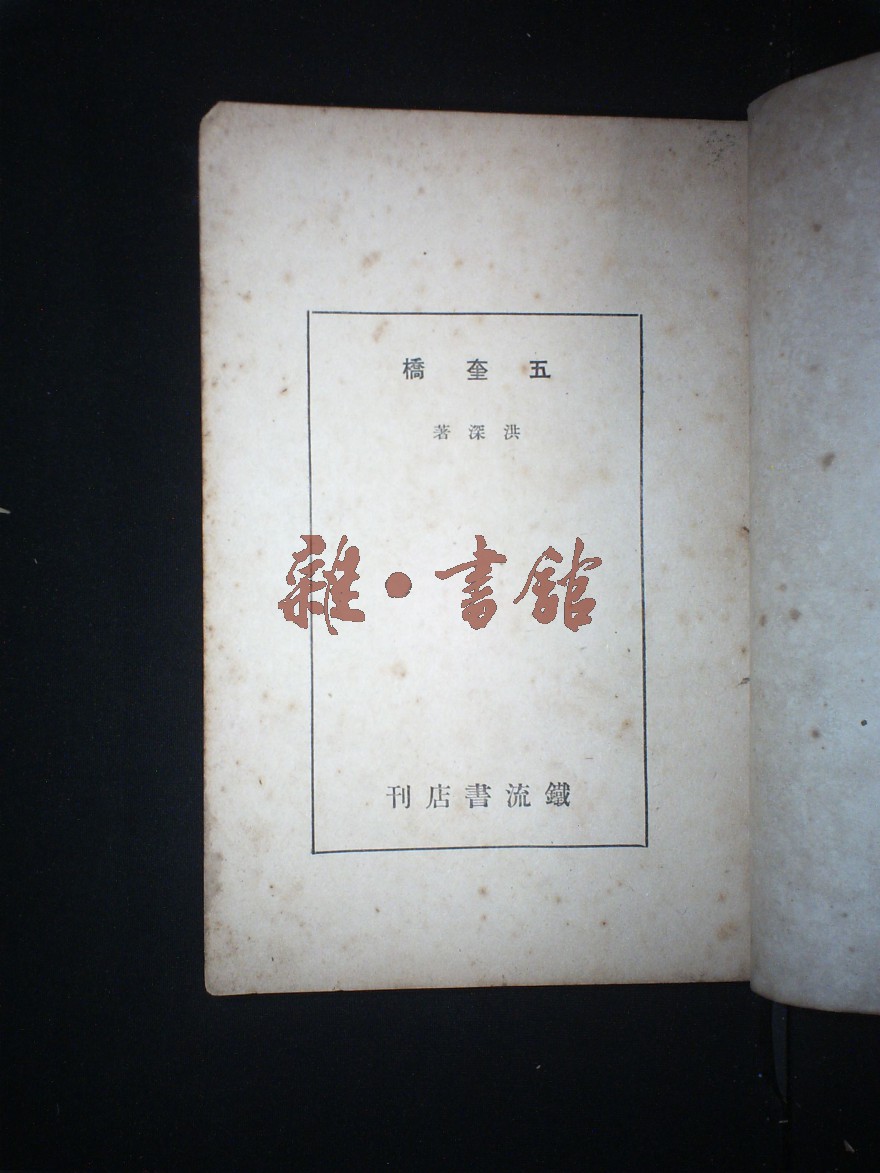 五奎橋
洪深著
雜·書館
鐵流書店刊